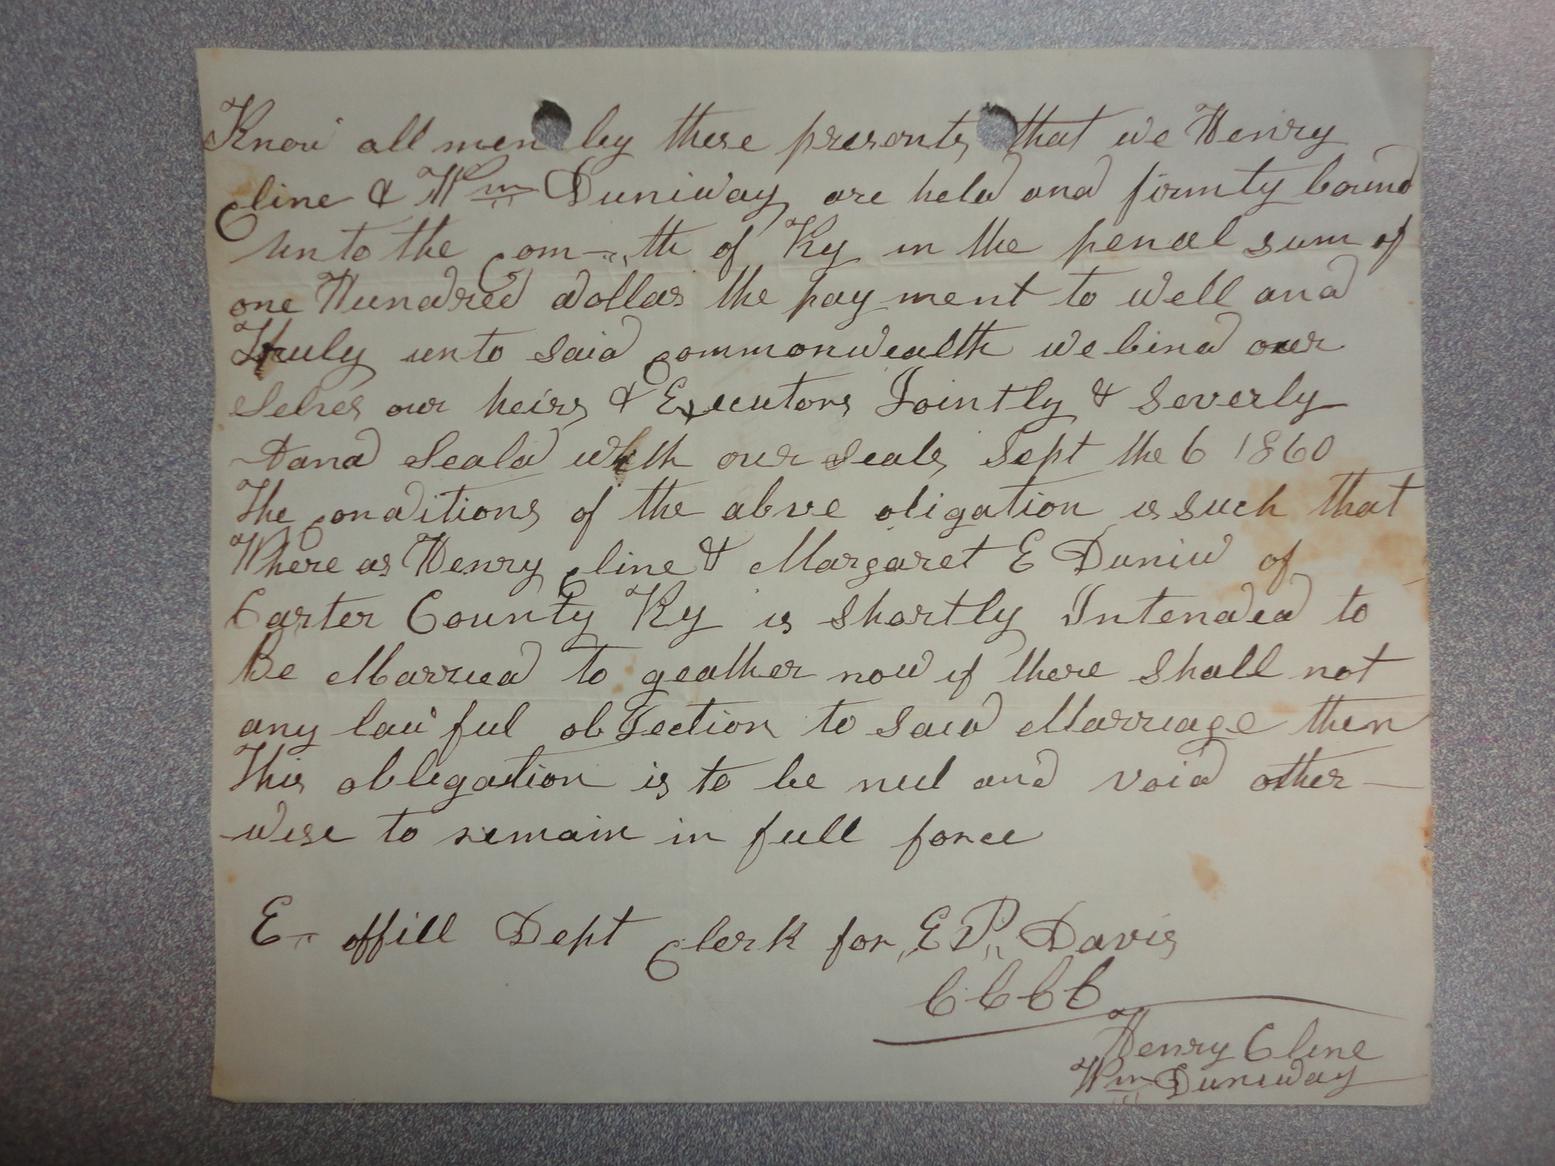 Know all men by these presents that we Henry
Cline & Wm Duniway are held and firmty bound
unto the Com-th of Ky in the penal sum of
one Hundred dollars the payment to well and
Truly unto said Commonwealth we bind our
selves our heirs & Executors Jointly & Severly
and Seald with our seals Sept the 6 1860
The Conditions of the abve obligation is such that
Where as Henry Cline & Margaret E Duniw of
Carter County Ky is shortly Intended to
Be Married to geather now if there shall not
any lawful objection to said Marriage then
This obligation is to be null and void other-
wise to remain in full force
E. offill Dept Clerk for E P Davis
CCCC
Henry Cline
Wm Duniway